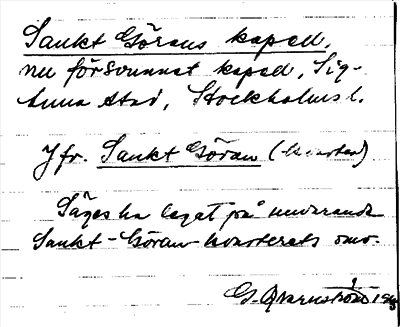 Sankt Görans kapell,
nu försvunnet kapell, Sig-
tuna stad, Stockholms l.
Jfr. Sankt Göran (kvarter)
Säges ha legat på nuvarande
Sankt-Göran-kvarterets omr.
G. Qvarnström